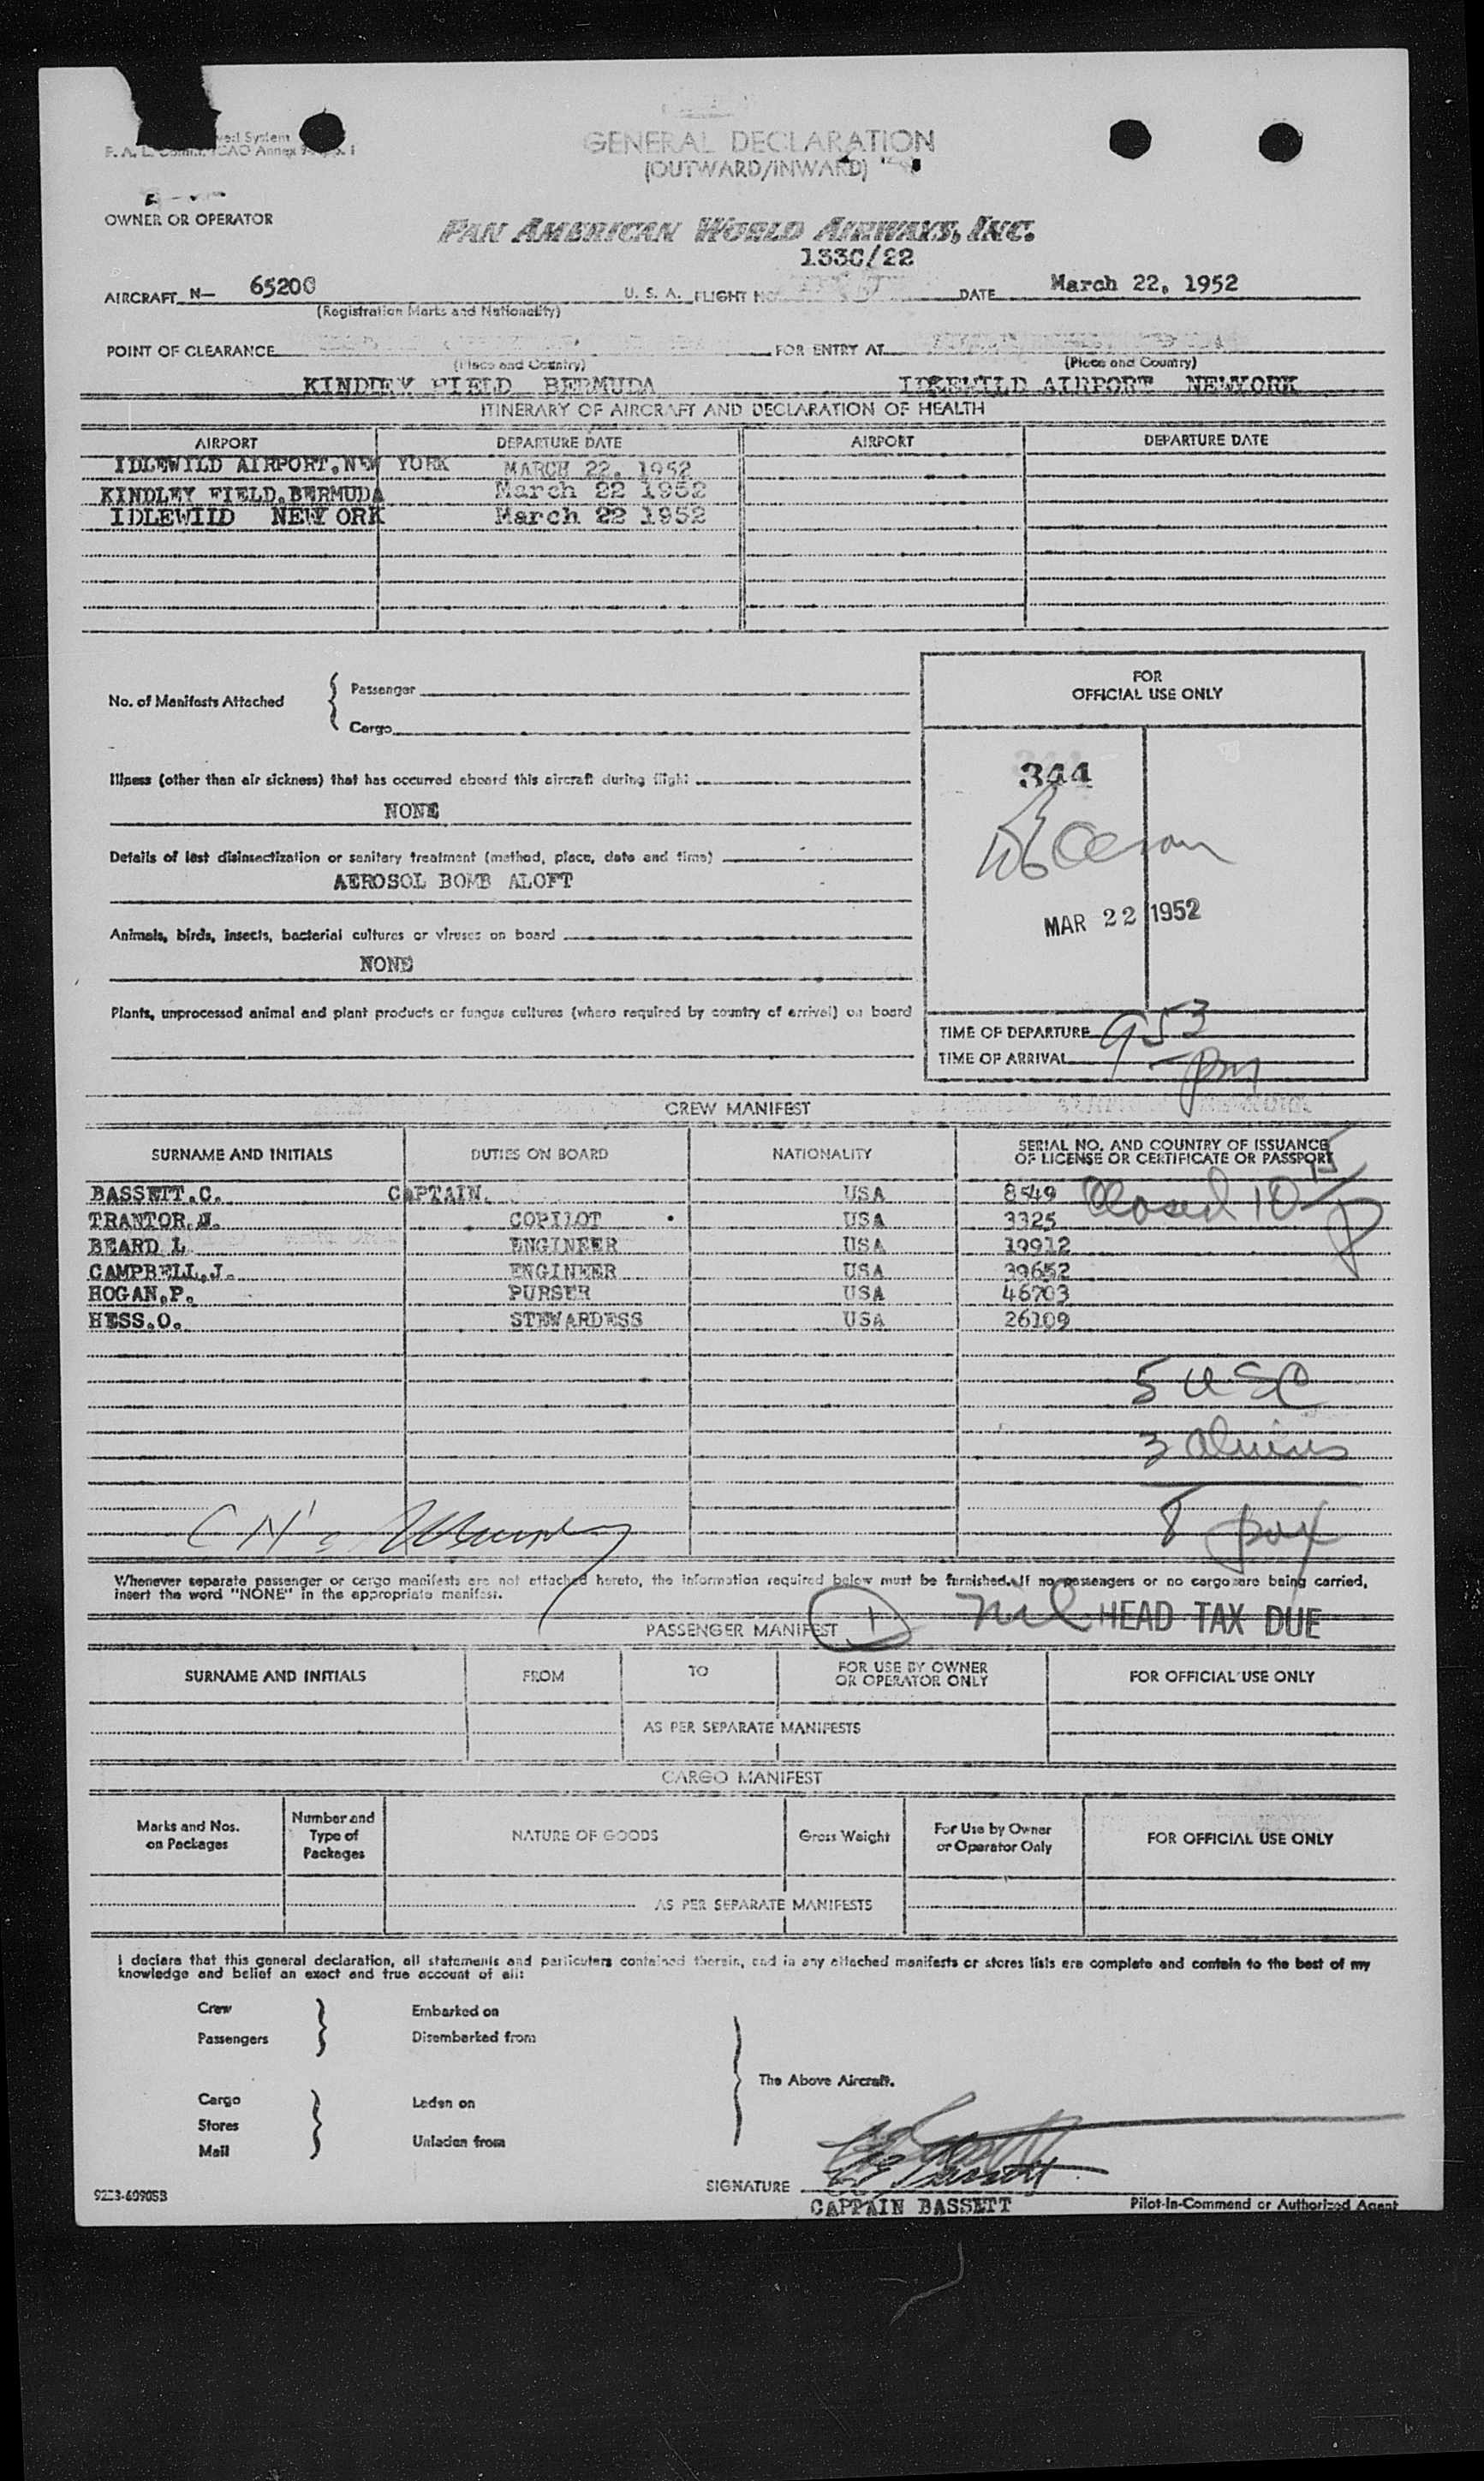 GENERAL DECLARATION
(OUTWARD/INWARD)
OWNER OR OPERATOR
PAN AMERICAN WORLD AIRWAYS, INC.
1330/22
AIRCRAFT N— 65200 U. S. A. FLIGHT NO. DATE March 22, 1952
(Registration Marks and Nationality)
POINT OF CLEARANCE FOR ENTRY AT
(Place and Country) (Place and Country)
KINDLEY FIELD BERMUDA IDLEWILD AIRPORT NEWYORK
ITINERARY OF AIRCRAFT AND DECLARATION OF HEALTH
AIRPORT DEPARTURE DATE AIRPORT DEPARTURE DATE
IDLEWILD AIRPORT, NEW YORK MARCH 22, 1952
KINDLEY FIELD, BERMUDA March 22 1952
IDLEWILD NEWY ORK March 22 1952
FOR
OFFICIAL USE ONLY
No. of Manifests Attached
Passenger
Cargo
344
Illness (other than air sickness) that has occurred aboard this aircraft during flight
NONE
Details of last disinsectization or sanitary treatment (method, place, date and time)
AEROSOL BOMB ALOFT
MAR 22 1952
Animals, birds, insects, bacterial cultures or viruses on board
NONE
Plants, unprocessed animal and plant products or fungus cultures (where required by country of arrival) on board
TIME OF DEPARTURE 953
TIME OF ARRIVAL pm
CREW MANIFEST
SURNAME AND INITIALS DUTIES ON BOARD NATIONALITY SERIAL NO. AND COUNTRY OF ISSUANCE
OF LICENSE OR CERTIFICATE OR PASSPORT
BASSETT.C. CAPTAIN. USA 8549 Closed 10 15 P
TRANTOR.N. COPILOT USA 3325
BEARD L ENGINEER USA 19912
CAMPBELL.J. ENGINEER USA 39652
HOGAN.P. PURSER USA 46703
HESS.O. STEWARDESS USA 26109
5 USC
3 aliens
8 pax
Whenever separate passenger or cargo manifests are not attached hereto, the information required below must be furnished. If no passengers or no cargo are being carried,
insert the word "NONE" in the appropriate manifest.
nil HEAD TAX DUE
PASSENGER MANIFEST 1
SURNAME AND INITIALS FROM TO FOR USE BY OWNER
OR OPERATOR ONLY FOR OFFICIAL USE ONLY
AS PER SEPARATE MANIFESTS
CARGO MANIFEST
Marks and Nos.
on Packages Number and
Type of
Packages NATURE OF GOODS Gross Weight For Use by Owner
or Operator Only FOR OFFICIAL USE ONLY
AS PER SEPARATE MANIFESTS
I declare that this general declaration, all statements and particulars contained therein, and in any attached manifests or stores lists are complete and contain to the best of my
knowledge and belief an exact and true account of all:
Crew Embarked on
Passengers Disembarked from
The Above Aircraft.
Cargo Laden on
Stores
Mail Unladen from
SIGNATURE
CAPTAIN BASSETT Pilot-In-Command or Authorized Agent